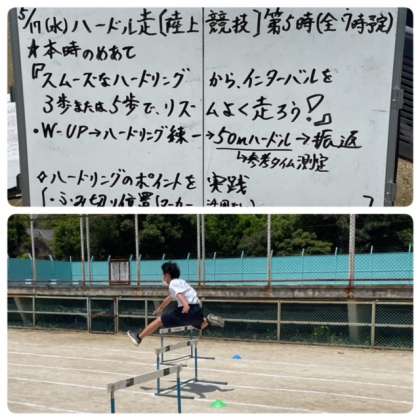 5/17(水)ハードル走[陸上競技]第5時(全7時予定)
★本時のめあて
『スムーズなハードリングから、インターバルを
3歩または5歩で、リズムよく走ろう!』
・W-UP→ハードリング練→50mハードル→振返
↳参考タイム測定
◇ハードリングのポイントを実践
・ふみ切り位置